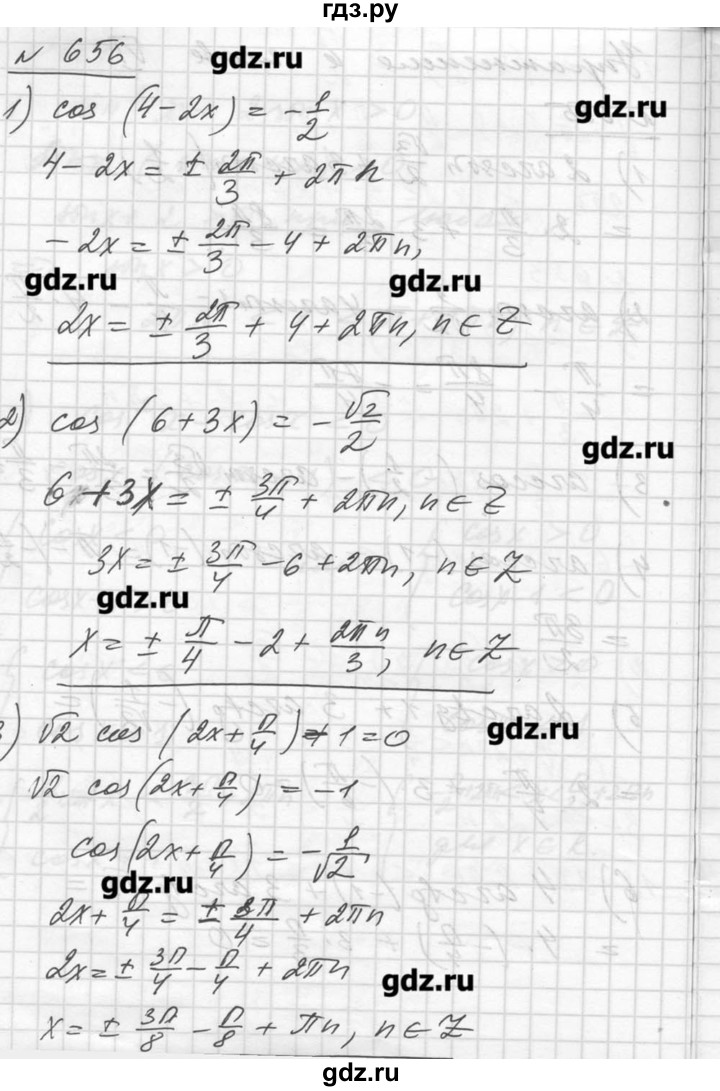 гдз.ру
№ 656
gdz.ru
1) cos (4-2x) = -1/2
gdz.ru
4-2x = ± 2π/3 + 2πn
-2x = ± 2π/3 - 4 + 2πn,
gdz.ru
gdz.ru
2x = ± 2π/3 + 4 + 2πn, n ∈ Z
2) cos (6+3x) = -√2/2
gdz.ru
6+3x = ± 3π/4 + 2πn, n ∈ Z
3x = ± 3π/4 - 6 + 2πn, n ∈ Z
gdz.ru
x = ± π/4 - 2 + 2πn/3, n ∈ Z
3) √2 cos (2x + π/4) + 1 = 0
gdz.ru
√2 cos (2x + π/4) = -1
cos (2x + π/4) = -1/√2
gdz.ru
2x + π/4 = ± 3π/4 + 2πn
2x = ± 3π/4 - π/4 + 2πn
gdz.ru
x = ± 3π/8 - π/8 + πn, n ∈ Z
gdz.ru